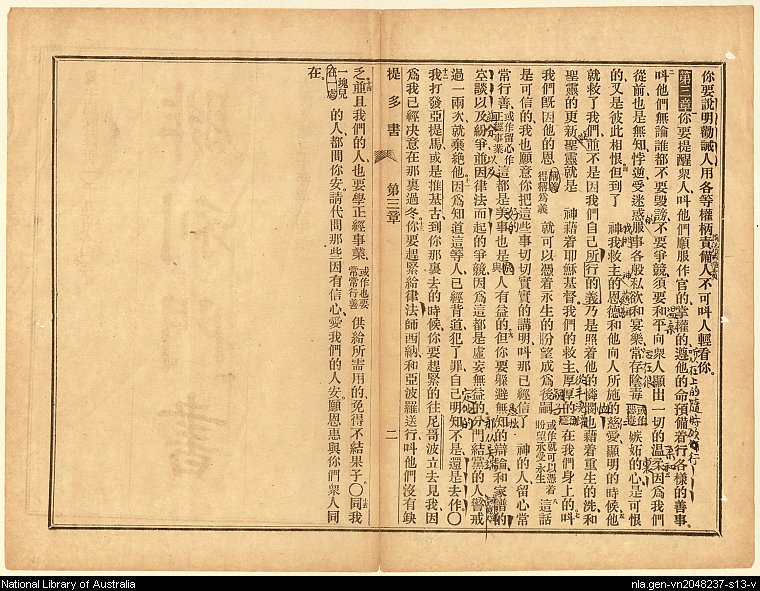 你要說明勸誡人用各等權柄責備人不可呌人輕看你
第三章 你要提醒衆人呌他們順服作官的掌權的遵他的命預備着行各樣的善事
呌他們無論誰都不要毀謗不要爭競須要和平向衆人顯出一切的温柔因爲我們
從前也是無知悖逆受迷惑服事各般私欲和宴樂常存陰毒嫉妬的心是可恨
的又是彼此相恨但到了 神我救主的恩德和他向人所施的慈愛顯明的時候他
就救了我們並不是因我們自己所行的義乃是照着他的憐憫也藉着重生的洗和
聖靈的更新聖靈就是 神藉着耶穌基督我們的救主厚厚的在我們身上的呌
我們旣因他的恩 得稱爲義 就可以憑着永生的盼望成爲後嗣 或作就可以憑着盼望承受永生 這話
是可信的我也願意你把這些事切切實實的講明呌那已經信了 神的人留心常
常行善 或作留心作正經事業 這都是美事也是與人有益的但你要躲避無知的辯論和家譜的
空談以及紛爭並因律法而起的爭競因爲這都是虛妄無益的分門結黨的人警戒
過一兩次就棄絶他因爲知道這等人已經背道犯了罪自己明知不是還是去作〇
我打發亞提馬或是推基古到你那裏去的時候你要趕緊的往尼哥波立去見我因
爲我已經決意在那裏過冬你要趕緊給律法師西納和亞波羅送行呌他們沒有缺
提多書 第三章 二
乏並且我們的人也要學正經事業 或作也要常常行善 供給所需用的免得不結果子〇同我
一塊兒在一處的人都問你安請代問那些因有信心愛我們的人安願恩惠與你們衆人同
在
National Library of Australia
nla.gen-vn2048237-s13-v